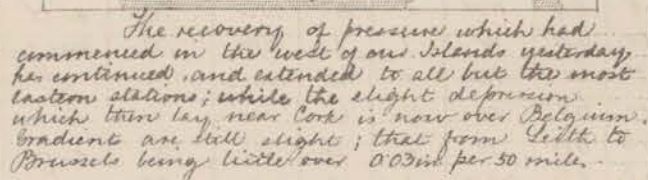 The recovery of pressure which had
commenced in the west of our Islands yesterday
has continued, and extended to all but the most
eastern stations; while the slight depression
which then lay near Cork is now over Belgium.
Gradient are still slight; that from Leith to
Brussels being little over 0.03in per 50 miles.